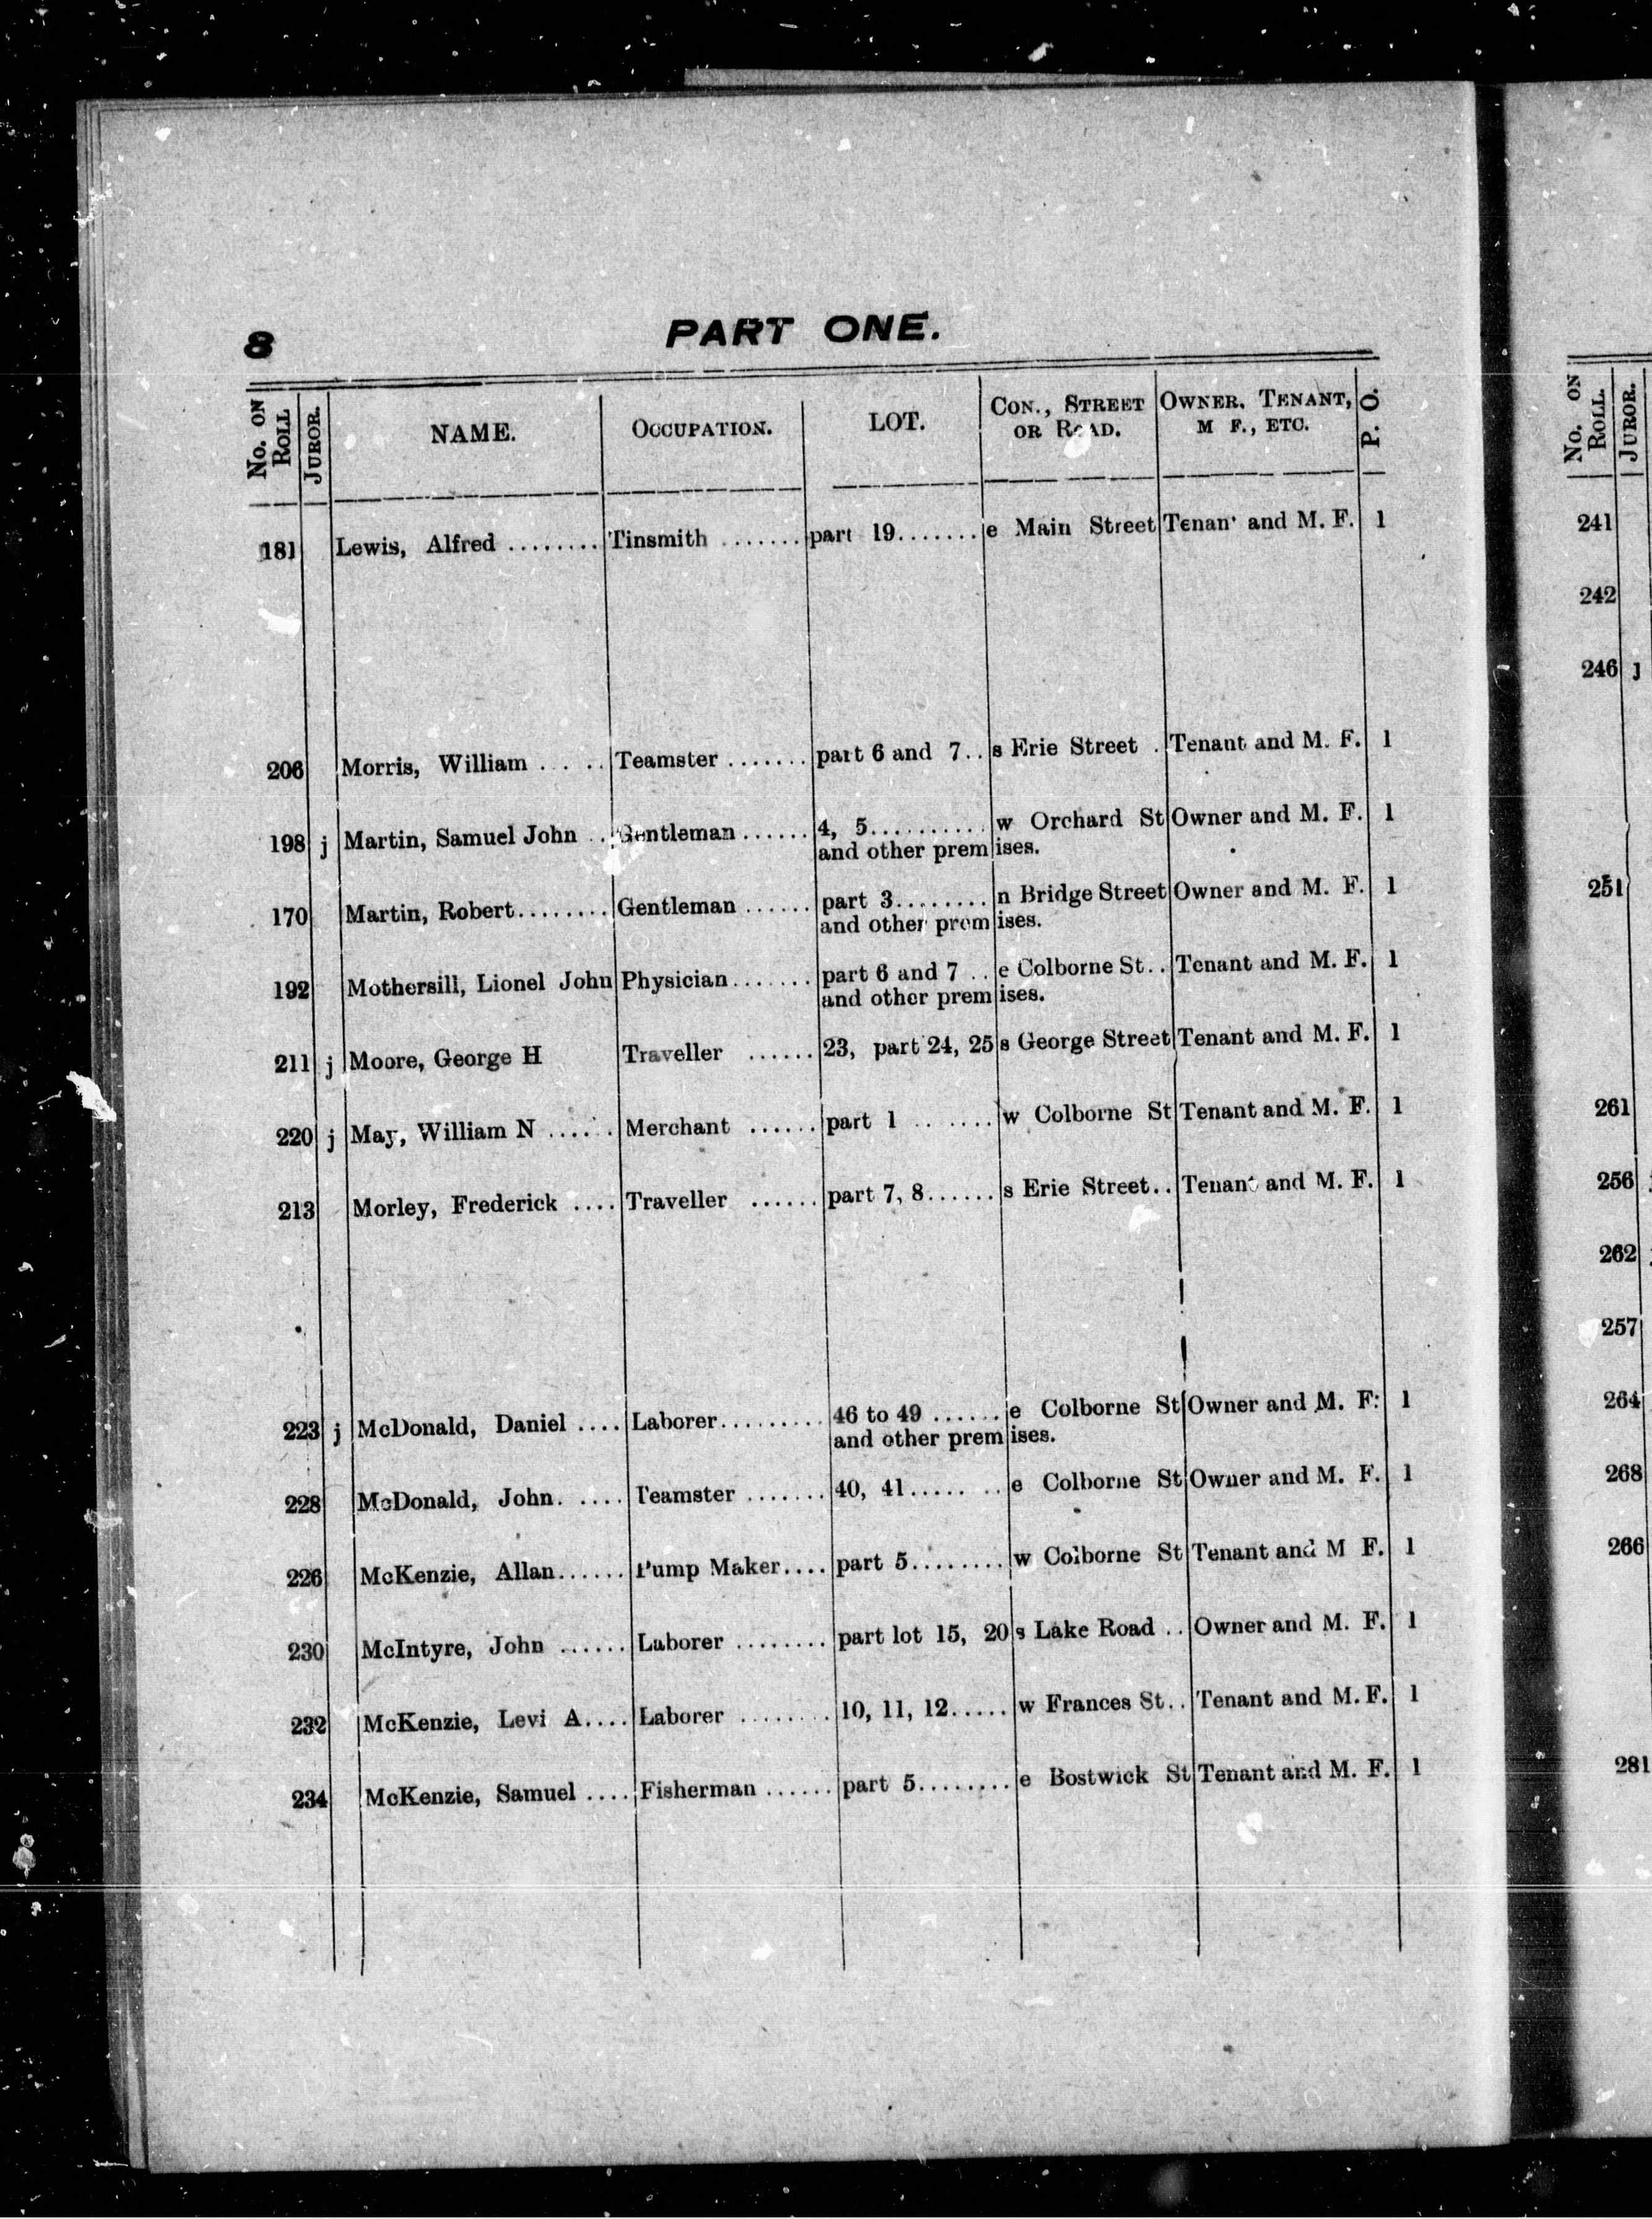 8 PART ONE.
No. ON ROLL JUROR. NAME. OCCUPATION. LOT. CON., STREET OR ROAD. OWNER, TENANT, M F., ETC. P. O.
181 Lewis, Alfred ........ Tinsmith ....... part 19....... e Main Street Tenant and M. F. 1
206 Morris, William . . . . Teamster ....... part 6 and 7.. s Erie Street . Tenant and M. F. 1
198 j Martin, Samuel John .. Gentleman ...... 4, 5.......... w Orchard St Owner and M. F. 1
and other premises.
170 Martin, Robert........ Gentleman ...... part 3........ n Bridge Street Owner and M. F. 1
and other premises.
192 Mothersill, Lionel John Physician....... part 6 and 7 .. e Colborne St.. Tenant and M. F. 1
and other premises.
211 j Moore, George H Traveller ...... 23, part 24, 25 s George Street Tenant and M. F. 1
220 j May, William N ...... Merchant ...... part 1 ....... w Colborne St Tenant and M. F. 1
213 Morley, Frederick .... Traveller ...... part 7, 8...... s Erie Street.. Tenant and M. F. 1
223 j McDonald, Daniel .... Laborer......... 46 to 49 ...... e Colborne St Owner and M. F. 1
and other premises.
228 McDonald, John. .... Teamster ....... 40, 41..... .. e Colborne St Owner and M. F. 1
226 McKenzie, Allan...... Pump Maker.... part 5........ w Colborne St Tenant and M F. 1
230 McIntyre, John ...... Laborer ........ part lot 15, 20 s Lake Road .. Owner and M. F. 1
232 McKenzie, Levi A.... Laborer ........ 10, 11, 12..... w Frances St.. Tenant and M. F. 1
234 McKenzie, Samuel .... Fisherman ...... part 5........ e Bostwick St Tenant and M. F. 1
No. ON ROLL. JUROR.
241
242
246 j
251
261
256
262
257
264
268
266
281